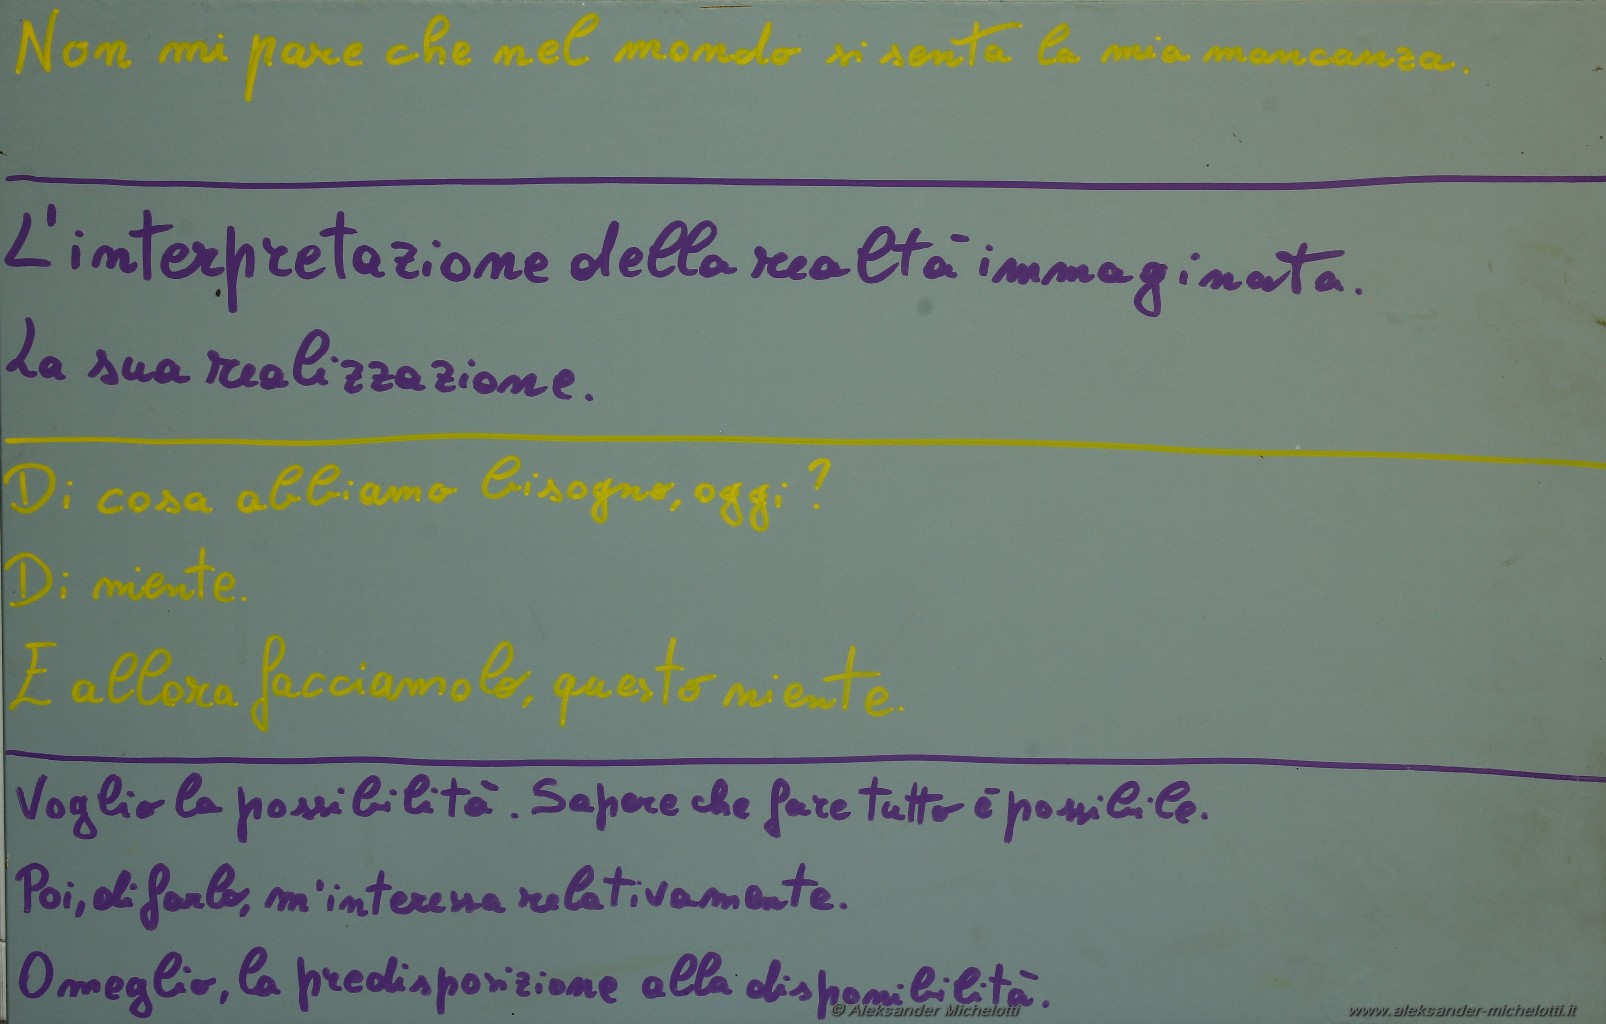 Non mi pare che nel mondo si senta la mia mancanza.
L'interpretazione della realtà immaginata.
La sua realizzazione.
Di cosa abbiamo bisogno, oggi?
Di niente.
E allora facciamolo, questo niente.
Voglio la possibilità. Sapere che fare tutto è possibile.
Poi, di farlo, m'interessa relativamente.
O meglio, la predisposizione alla disponibilità.
© Aleksander Michelotti www.aleksander-michelotti.it